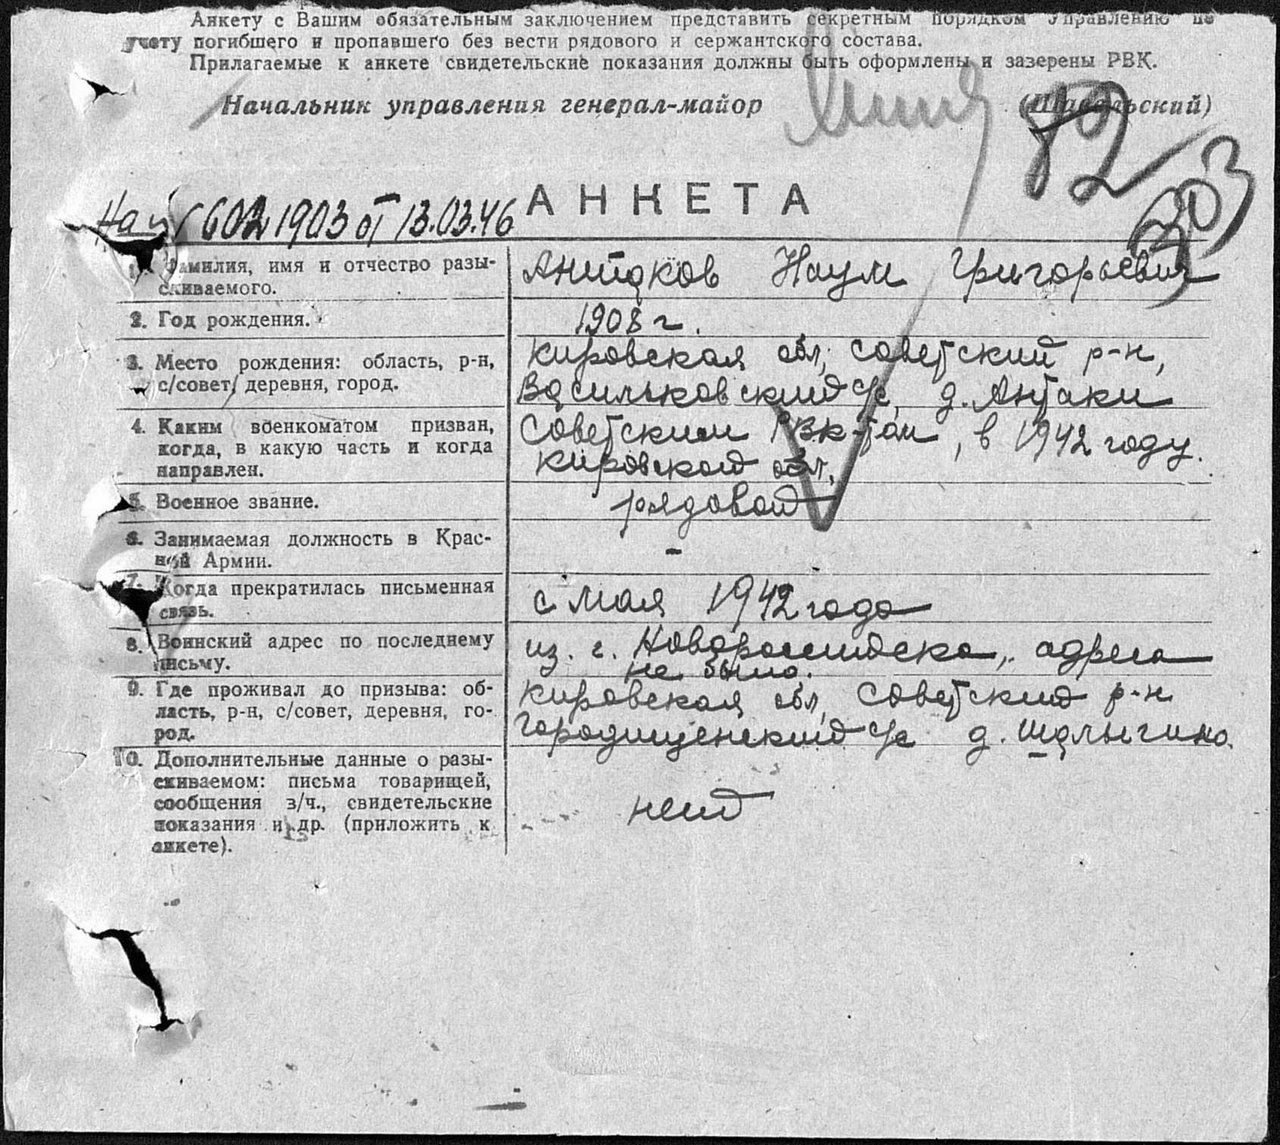 Анкету с Вашим обязательным заключением представить секретным порядком Управлению по
учету погибшего и пропавшего без вести рядового и сержантского состава.
Прилагаемые к анкете свидетельские показания должны быть оформлены и заверены РВК.
Начальник управления генерал-майор (Шавельский)
82
303
АНКЕТА
На 1903 от 13.03.46
1. Фамилия, имя и отчество разы-
скиваемого.
Антаков Наум Григорьевич
2. Год рождения.
1908 г.
3. Место рождения: область, р-н,
с/совет, деревня, город.
Кировская обл, Советский р-н,
Васильковский с/с, д. Антаки
4. Каким военкоматом призван,
когда, в какую часть и когда
направлен.
Советским РВК-том, в 1942 году.
Кировской обл.
5. Военное звание.
рядовой
6. Занимаемая должность в Крас-
ной Армии.
-
7. Когда прекратилась письменная
связь.
с мая 1942 года
8. Воинский адрес по последнему
письму.
из. г. Новороссийска, адреса
не было.
9. Где проживал до призыва: об-
ласть, р-н, с/совет, деревня, го-
род.
Кировская обл, Советский р-н
Городищенский с/с д. Шалыгино.
10. Дополнительные данные о разы-
скиваемом: письма товарищей,
сообщения з/ч., свидетельские
показания и др. (приложить к
анкете).
нет